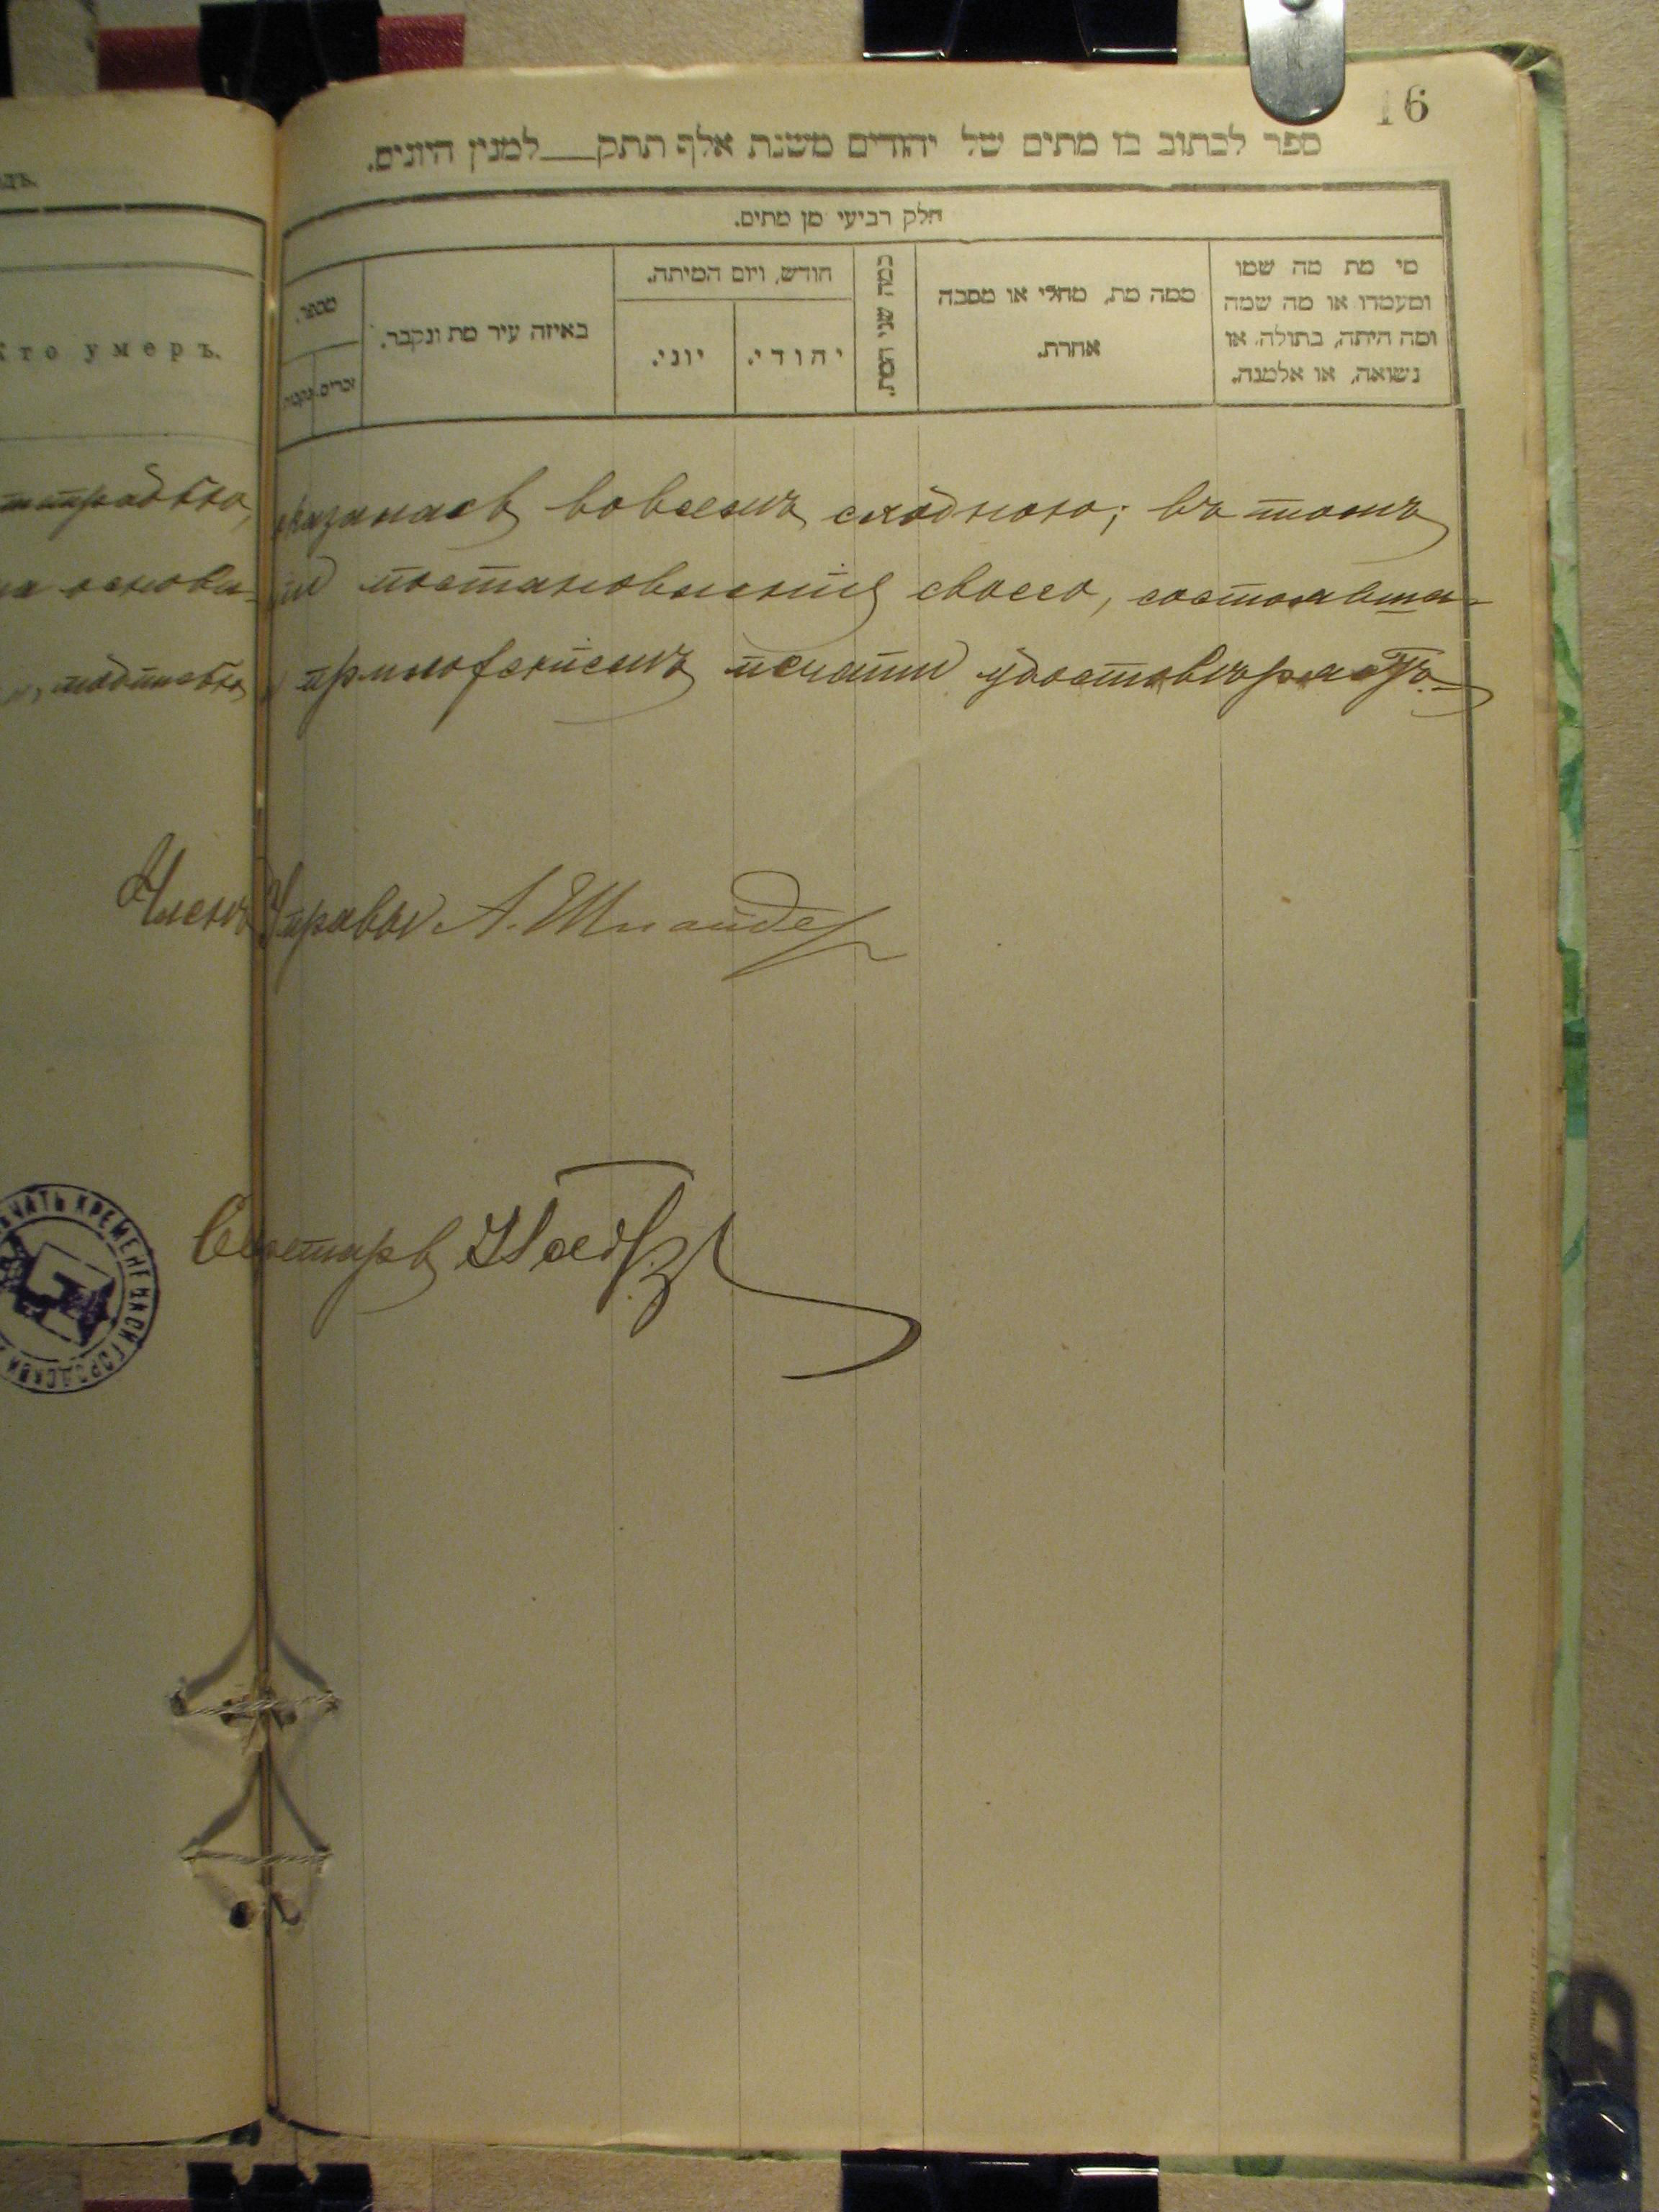 16
ספר לכתוב בו מתים של יהודים משנת אלף תתק___למנין היונים.
חלק רביעי מן מתים.
מי מת מה שמו
ומעמדו או מה שמה
ומה היתה, בתולה, או
נשואה, או אלמנה.
ממה מת, מחלי או מסבה
אחרת.
כמה שני המת.
חודש, ויום המיתה.
יהודי.
יוני.
באיזה עיר מת ונקבר.
מספר.
זכרים.
נקבות
Кто умеръ.
оказалась вовсемъ сходною; въ томъ
на основа- постановленія своего, состоявша-
подписью приложеніемъ печати удостовѣряетъ.
Членъ Управы А. Шнайдер
Секретарь
ПЕЧАТЬ КРЕМЕНЕЦКОЙ ГОРОДСКОЙ